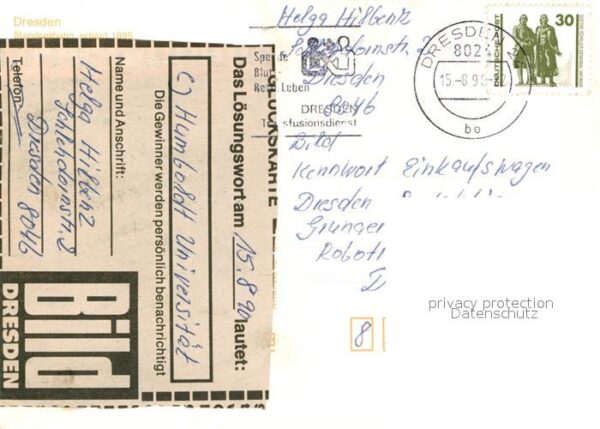 Dresden
Standseilbahn, erbaut 1895
GLÜCKSKARTE
Das Lösungswort am 15.8.90 lautet:
C) Humboldt Universität
Die Gewinner werden persönlich benachrichtigt
Name und Anschrift:
Helga Hilbenz
Schlehdornstr. 2
Dresden 8046
Telefon:
Bild
DRESDEN
Helga Hilbenz
Schlehdornstr. 2
Dresden
8046
Spende
Blut
Rette Leben
DRESDEN
Transfusionsdienst
DRESDEN
802
15.-8.90
bo
30
Bild
Kennwort Einkaufswagen
Dresden
Grunaer
Robotr
8
privacy protection
Datenschutz